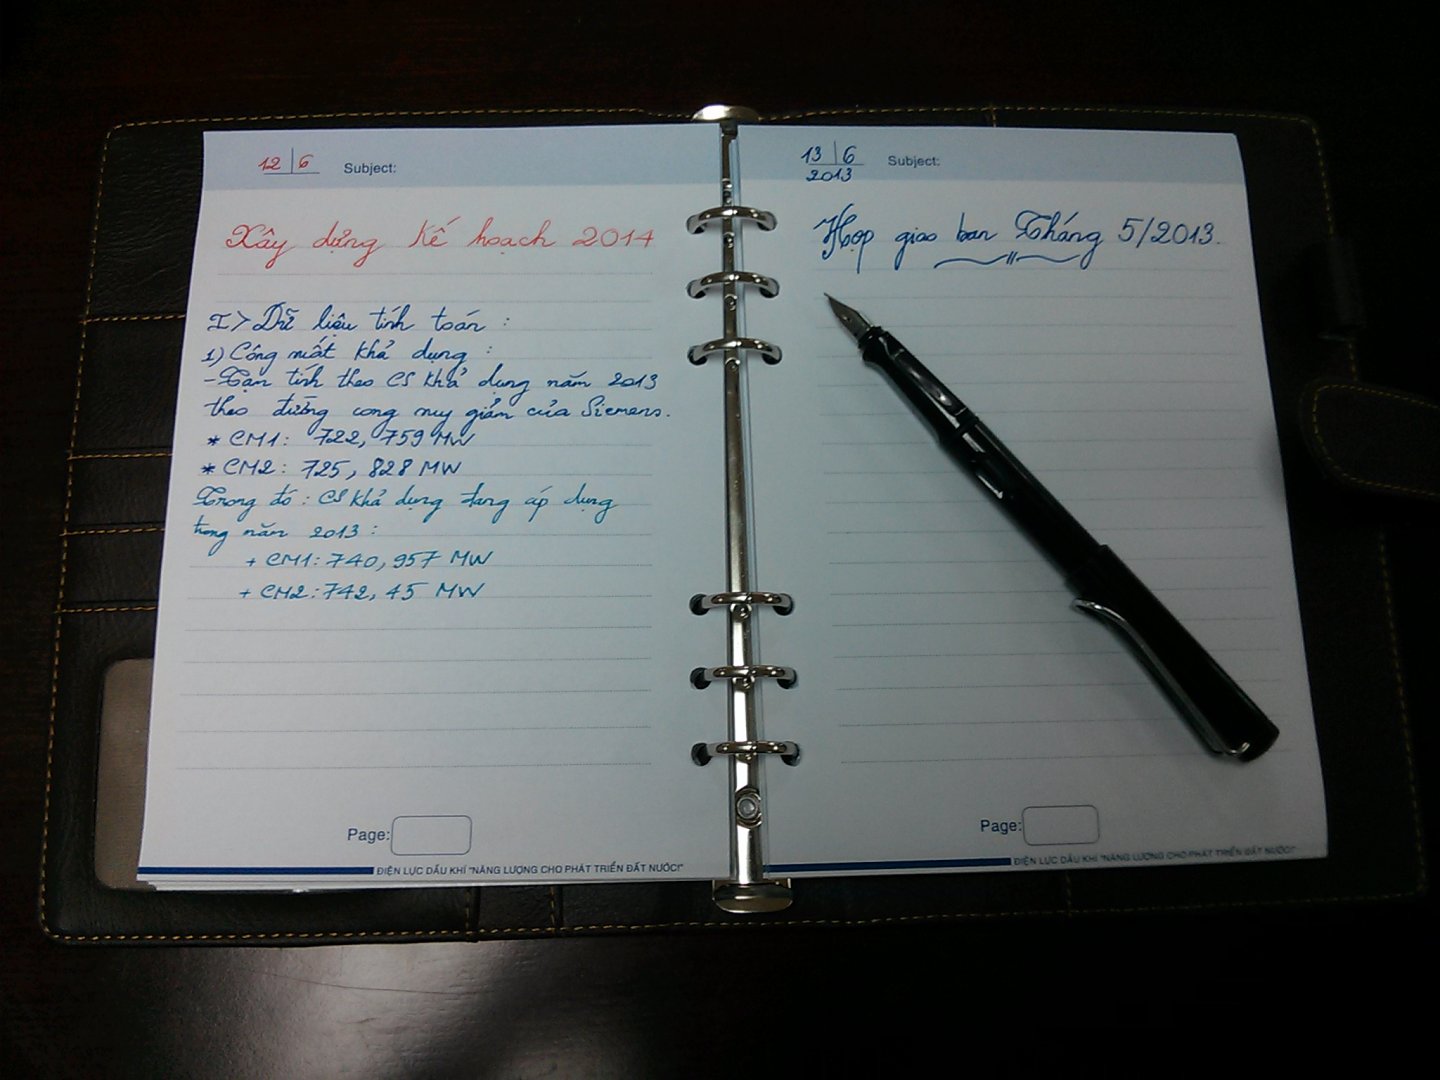 12 | 6 Subject:
Xây dựng kế hoạch 2014
I> Dữ liệu tính toán :
1) Công suất khả dụng :
- Tạm tính theo CS khả dụng năm 2013
theo đường cong suy giảm của Siemens.
* CM1: 722,759 MW
* CM2: 725,828 MW
Trong đó : CS khả dụng đang áp dụng
trong năm 2013 :
+ CM1: 740,957 MW
+ CM2: 742,45 MW
Page:
ĐIỆN LỰC DẦU KHÍ "NĂNG LƯỢNG CHO PHÁT TRIỂN ĐẤT NƯỚC!"
13 | 6 Subject:
2013
Họp giao ban Tháng 5/2013.
Page:
ĐIỆN LỰC DẦU KHÍ "NĂNG LƯỢNG CHO PHÁT TRIỂN ĐẤT NƯỚC!"